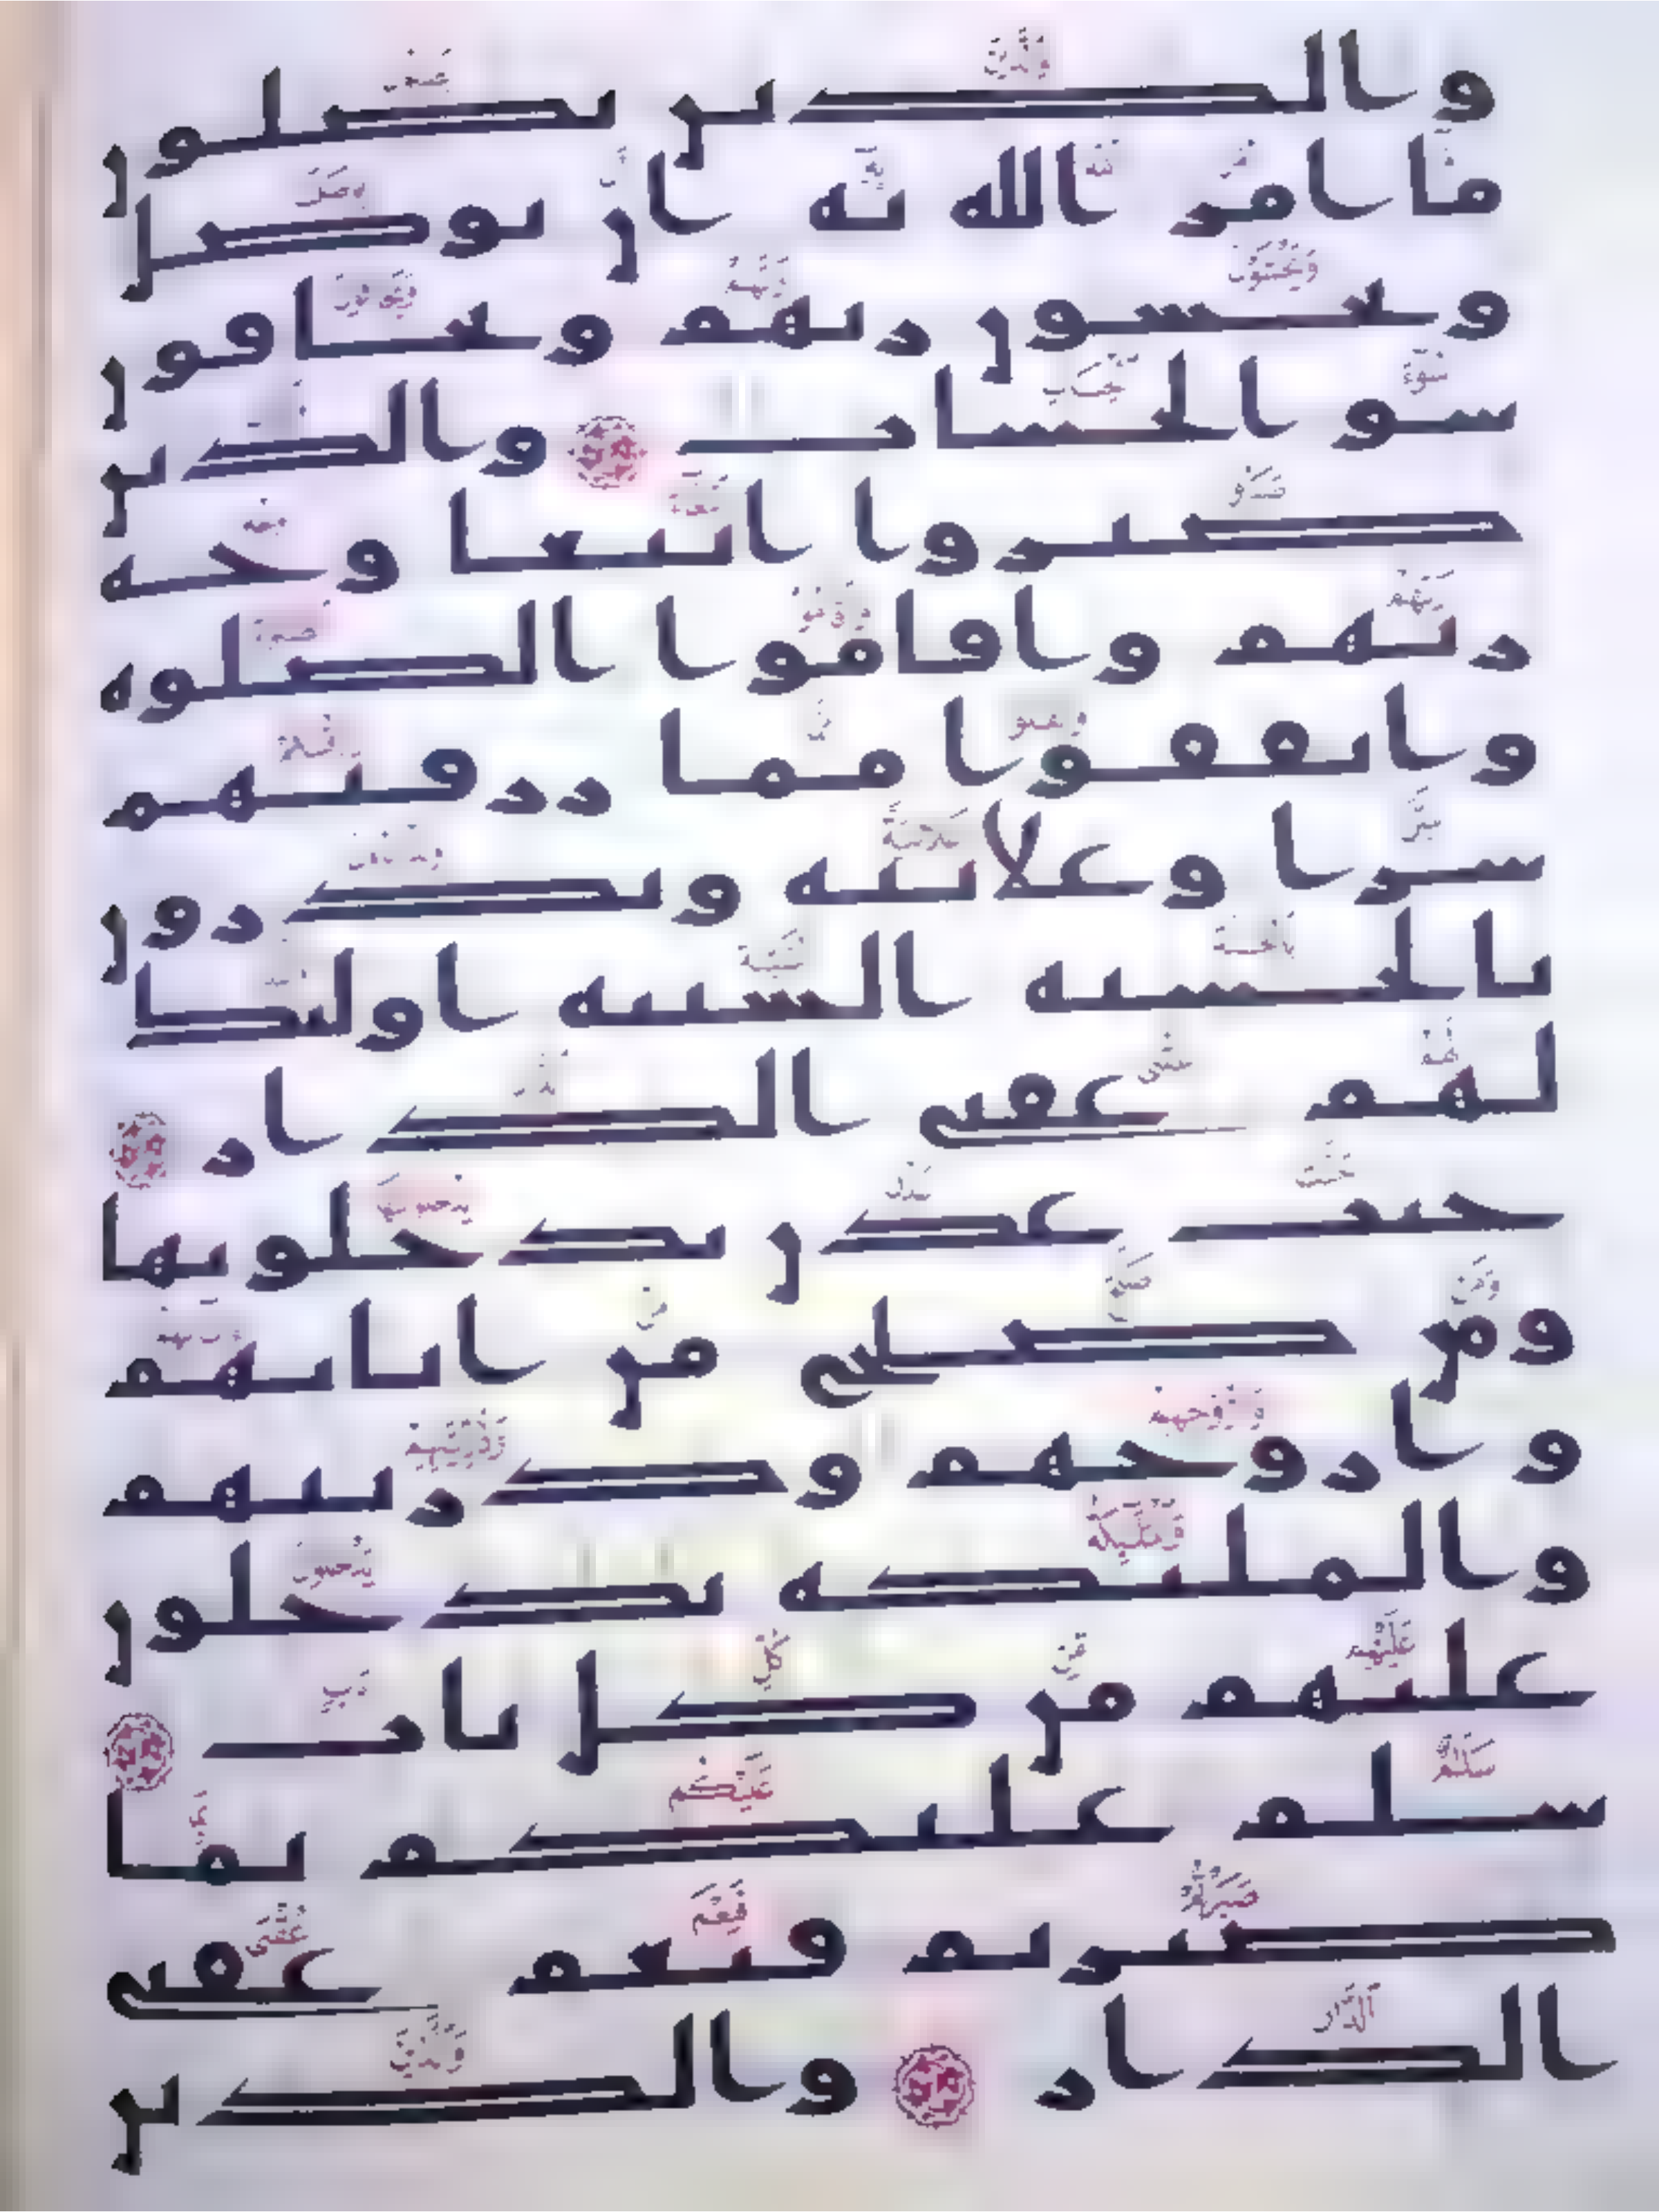 والذين يصلون
ما امر الله به ان يوصل
ويخشون ربهم ويخافون
سو الحساب والذين
صبروا ابتغا وجه
ربهم واقاموا الصلوه
وانفقوا مما رزقنهم
سرا وعلانيه ويدرون
بالحسنه السييه اولئك
لهم عقبى الدار
جنت عدن يدخلونها
ومن صلح من ابايهم
وازوجهم وذريتهم
والملئكه يدخلون
عليهم من كل باب
سلم عليكم بما
صبرتم فنعم عقبى
الدار والذين